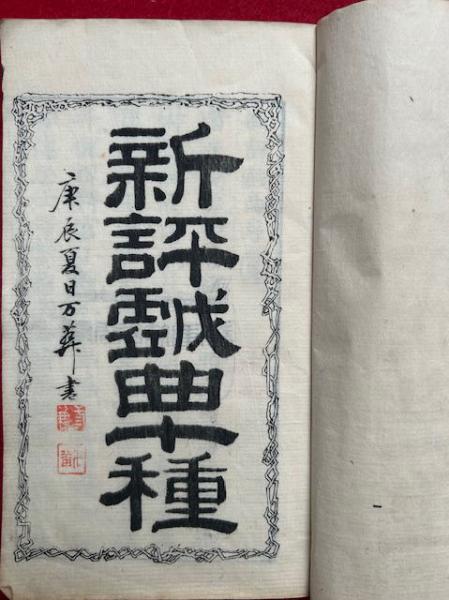 新評戲曲十種
庚辰夏日万書